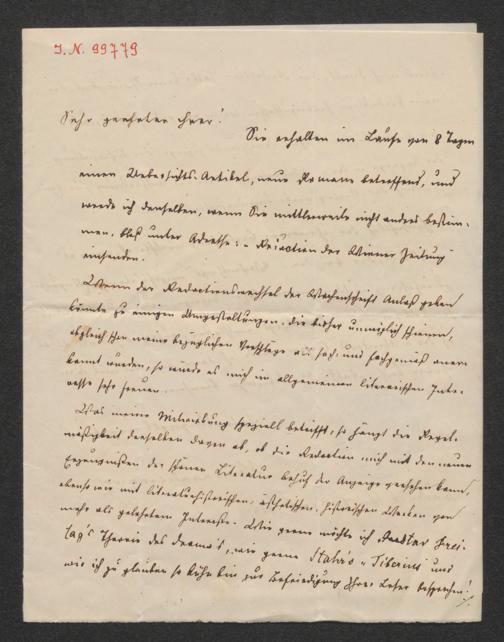 I. N. 99779
Sehr geehrter Herr!
Sie erhalten im Laufe von 8 Tagen
einen Uebersichts-Artikel, neue Romane betreffend, und
werde ich denselben, wenn Sie mittlerweile nicht anders bestim-
men, bloß unter Adresse: - Redaction der Wiener Zeitung
einsenden.
Wenn der Redactionswechsel der Wochenschrift Anlaß geben
könnte zu einigen Umgestaltungen, die bisher unmöglich schienen,
obgleich schon meine bezüglichen Vorschläge als fach- und sachgemäß aner-
kannt wurden, so würde es mich im allgemeinen literarischen Inte-
resse sehr freuen.
Was meine Mitwirkung speziell betrifft, so hängt die Regel-
mäßigkeit derselben davon ab, ob die Redaction mich mit den neuen
Erzeugnißen der schönen Literatur behufs der Anzeige versehen kann,
ebenso wie mit literaturhistorischen, ästhetischen, historischen Werken von
mehr als gelehrtem Interesse. Wie gerne möchte ich Gustav Frei-
tag's Theorie des Drama's, wie gerne Stahr's "Tiberius" und
wie ich zu glauben so kühn bin zur Befriedigung Ihrer Leser besprechen!